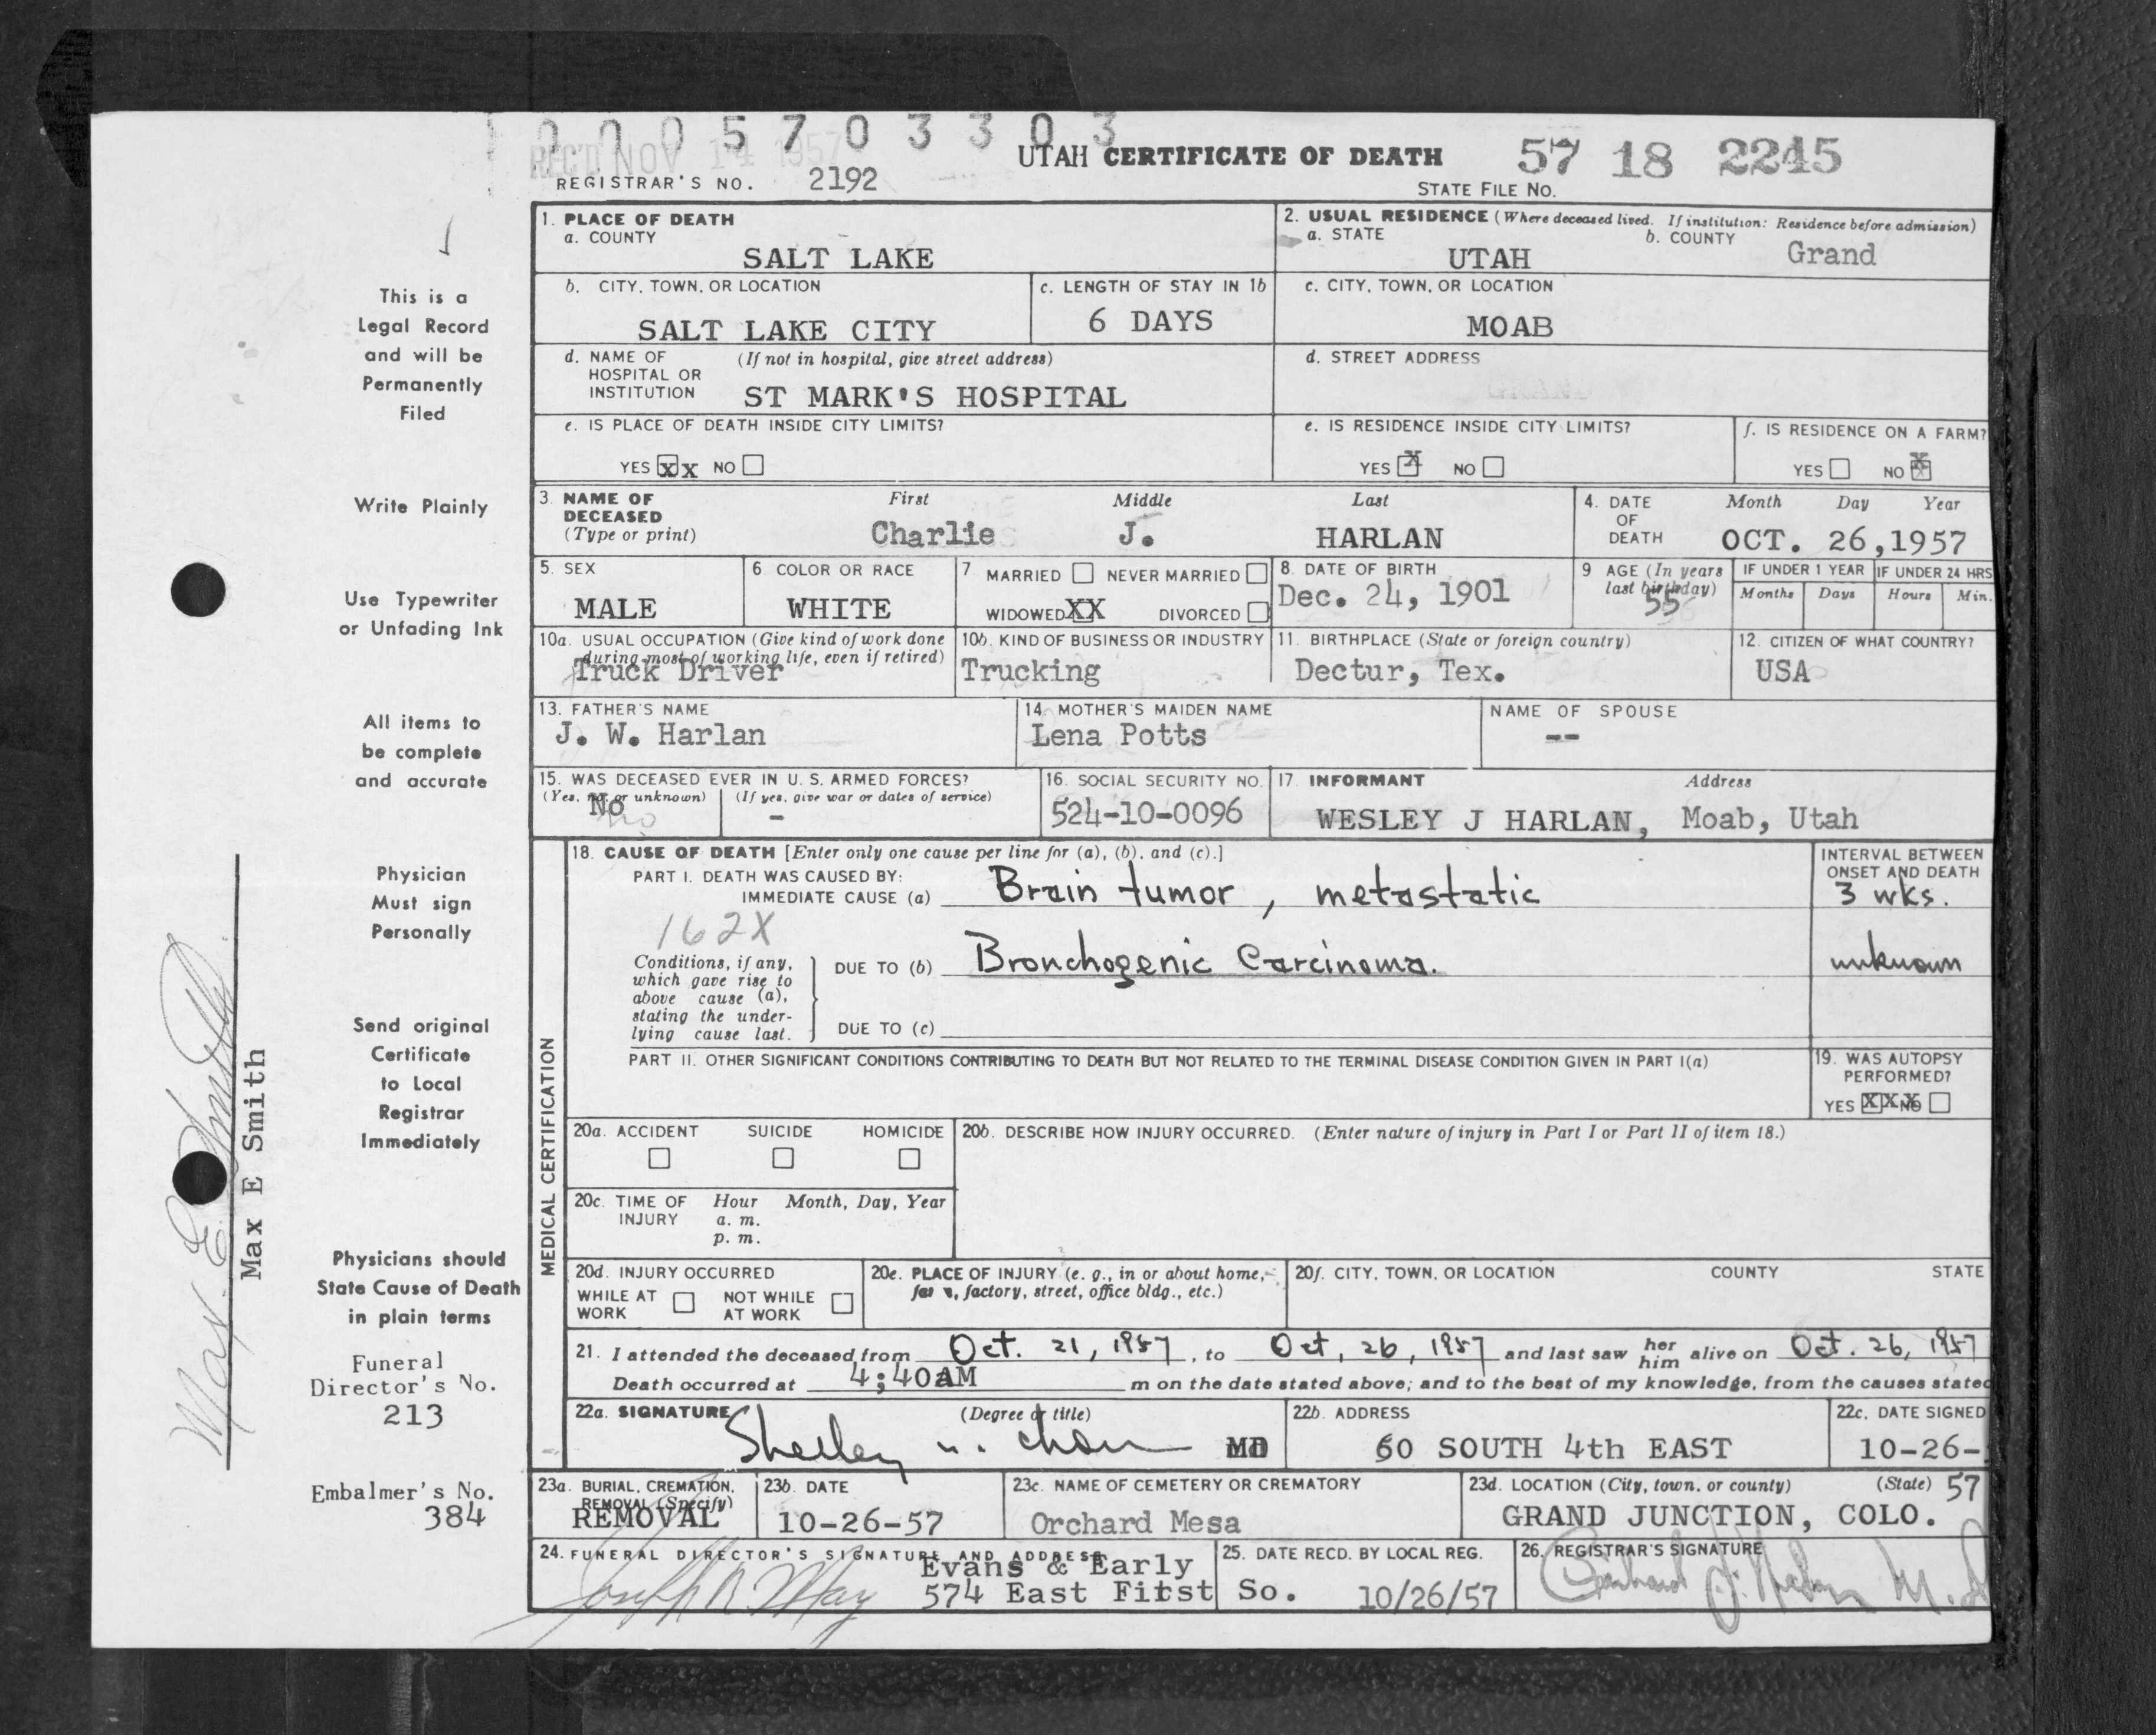 0 0 0 5 7 0 3 3 0 3
REC'D NOV 14 1957
UTAH CERTIFICATE OF DEATH
57 18 2245
REGISTRAR'S NO. 2192
STATE FILE NO.
1. PLACE OF DEATH
a. COUNTY
SALT LAKE
2. USUAL RESIDENCE (Where deceased lived. If institution: Residence before admission)
a. STATE
UTAH
b. COUNTY
Grand
b. CITY, TOWN, OR LOCATION
SALT LAKE CITY
c. LENGTH OF STAY IN 1b
6 DAYS
c. CITY, TOWN, OR LOCATION
MOAB
d. NAME OF HOSPITAL OR INSTITUTION
(If not in hospital, give street address)
ST MARK'S HOSPITAL
d. STREET ADDRESS
e. IS PLACE OF DEATH INSIDE CITY LIMITS?
YES XX NO
e. IS RESIDENCE INSIDE CITY LIMITS?
YES X NO
f. IS RESIDENCE ON A FARM?
YES NO X
3. NAME OF DECEASED
(Type or print)
First Middle Last
Charlie J. HARLAN
4. DATE OF DEATH
Month Day Year
OCT. 26,1957
5. SEX
MALE
6. COLOR OR RACE
WHITE
7 MARRIED NEVER MARRIED
WIDOWED XX DIVORCED
8. DATE OF BIRTH
Dec. 24, 1901
9 AGE (In years last birthday)
55
IF UNDER 1 YEAR
Months Days
IF UNDER 24 HRS
Hours Min.
10a. USUAL OCCUPATION (Give kind of work done during most of working life, even if retired)
Truck Driver
10b. KIND OF BUSINESS OR INDUSTRY
Trucking
11. BIRTHPLACE (State or foreign country)
Dectur, Tex.
12. CITIZEN OF WHAT COUNTRY?
USA
13. FATHER'S NAME
J. W. Harlan
14. MOTHER'S MAIDEN NAME
Lena Potts
NAME OF SPOUSE
--
15. WAS DECEASED EVER IN U. S. ARMED FORCES?
(Yes, no, or unknown) (If yes, give war or dates of service)
No -
no
16. SOCIAL SECURITY NO.
524-10-0096
17. INFORMANT Address
WESLEY J HARLAN, Moab, Utah
MEDICAL CERTIFICATION
18. CAUSE OF DEATH [Enter only one cause per line for (a), (b), and (c).]
PART I. DEATH WAS CAUSED BY:
IMMEDIATE CAUSE (a) Brain tumor, metastatic
INTERVAL BETWEEN ONSET AND DEATH
3 wks.
162X
Conditions, if any, which gave rise to above cause (a), stating the underlying cause last.
DUE TO (b) Bronchogenic Carcinoma.
unknown
DUE TO (c)
PART II. OTHER SIGNIFICANT CONDITIONS CONTRIBUTING TO DEATH BUT NOT RELATED TO THE TERMINAL DISEASE CONDITION GIVEN IN PART I(a)
19. WAS AUTOPSY PERFORMED?
YES XXX NO
20a. ACCIDENT SUICIDE HOMICIDE
20b. DESCRIBE HOW INJURY OCCURRED. (Enter nature of injury in Part I or Part II of item 18.)
20c. TIME OF INJURY
Hour Month, Day, Year
a. m.
p. m.
20d. INJURY OCCURRED
WHILE AT WORK NOT WHILE AT WORK
20e. PLACE OF INJURY (e. g., in or about home, farm, factory, street, office bldg., etc.)
20f. CITY, TOWN, OR LOCATION COUNTY STATE
21. I attended the deceased from Oct. 21, 1957, to Oct, 26, 1957 and last saw her him alive on Oct. 26, 1957
Death occurred at 4;40AM m on the date stated above; and to the best of my knowledge, from the causes stated
22a. SIGNATURE (Degree or title)
MD
22b. ADDRESS
60 SOUTH 4th EAST
22c. DATE SIGNED
10-26-
57
23a. BURIAL, CREMATION, REMOVAL (Specify)
REMOVAL
23b. DATE
10-26-57
23c. NAME OF CEMETERY OR CREMATORY
Orchard Mesa
23d. LOCATION (City, town, or county) (State)
GRAND JUNCTION, COLO.
24. FUNERAL DIRECTOR'S SIGNATURE AND ADDRESS
Joseph B May
Evans & Early
574 East First So.
25. DATE RECD. BY LOCAL REG.
10/26/57
26. REGISTRAR'S SIGNATURE
This is a
Legal Record
and will be
Permanently
Filed
Write Plainly
Use Typewriter
or Unfading Ink
All items to
be complete
and accurate
Physician
Must sign
Personally
Send original
Certificate
to Local
Registrar
Immediately
Physicians should
State Cause of Death
in plain terms
Funeral
Director's No.
213
Embalmer's No.
384
Max E. Smith
Max E Smith